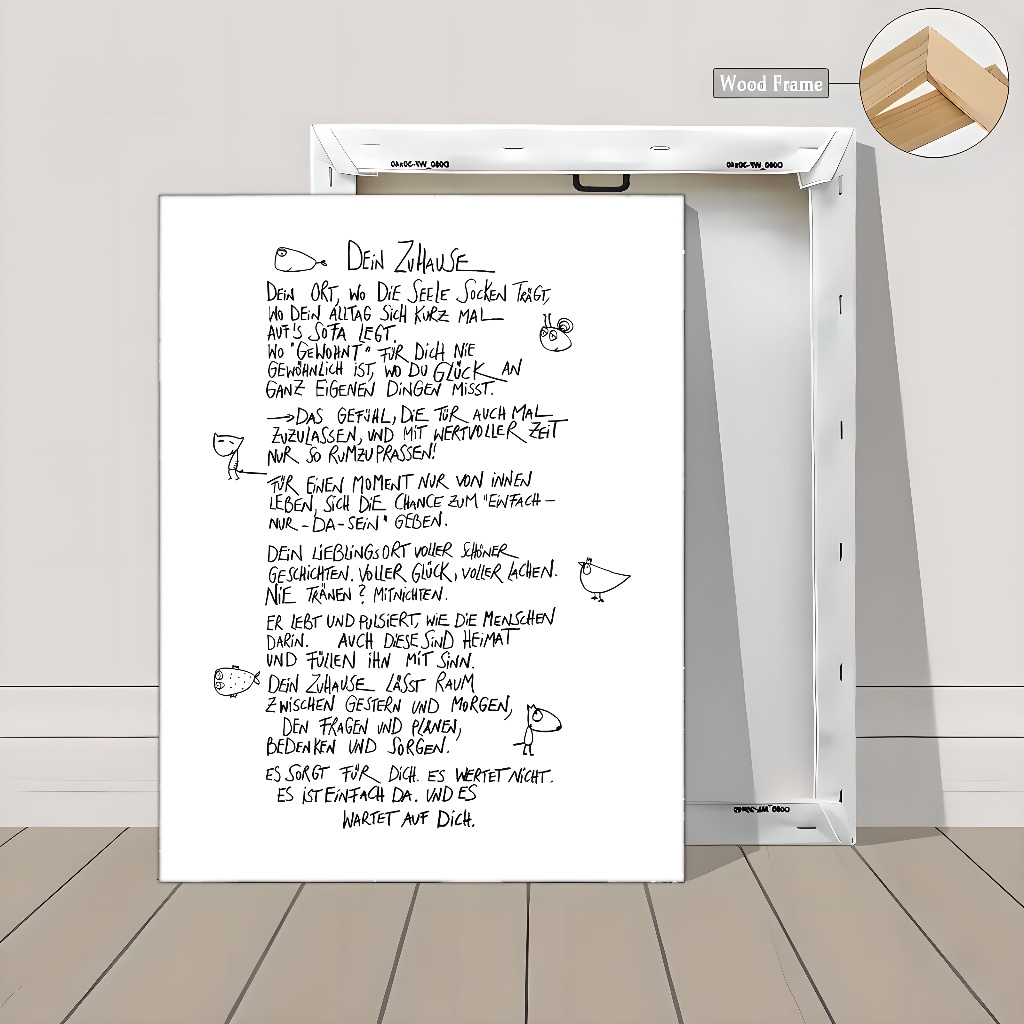 Wood Frame
DEIN ZUHAUSE
DEIN ORT, WO DIE SEELE SOCKEN TRÄGT,
WO DEIN ALLTAG SICH KURZ MAL
AUF'S SOFA LEGT.
WO "GEWOHNT" FÜR DICH NIE
GEWÖHNLICH IST, WO DU GLÜCK AN
GANZ EIGENEN DINGEN MISST.
→DAS GEFÜHL, DIE TÜR AUCH MAL
ZUZULASSEN, UND MIT WERTVOLLER ZEIT
NUR SO RUMZUPRASSEN!
FÜR EINEN MOMENT NUR VON INNEN
LEBEN, SICH DIE CHANCE ZUM "EINFACH-
NUR-DA-SEIN" GEBEN.
DEIN LIEBLINGSORT VOLLER SCHÖNER
GESCHICHTEN. VOLLER GLÜCK, VOLLER LACHEN.
NIE TRÄNEN? MITNICHTEN.
ER LEBT UND PULSIERT, WIE DIE MENSCHEN
DARIN. AUCH DIESE SIND HEIMAT
UND FÜLLEN IHN MIT SINN.
DEIN ZUHAUSE LÄSST RAUM
ZWISCHEN GESTERN UND MORGEN,
DEN FRAGEN UND PLÄNEN,
BEDENKEN UND SORGEN.
ES SORGT FÜR DICH. ES WERTET NICHT.
ES IST EINFACH DA. UND ES
WARTET AUF DICH.